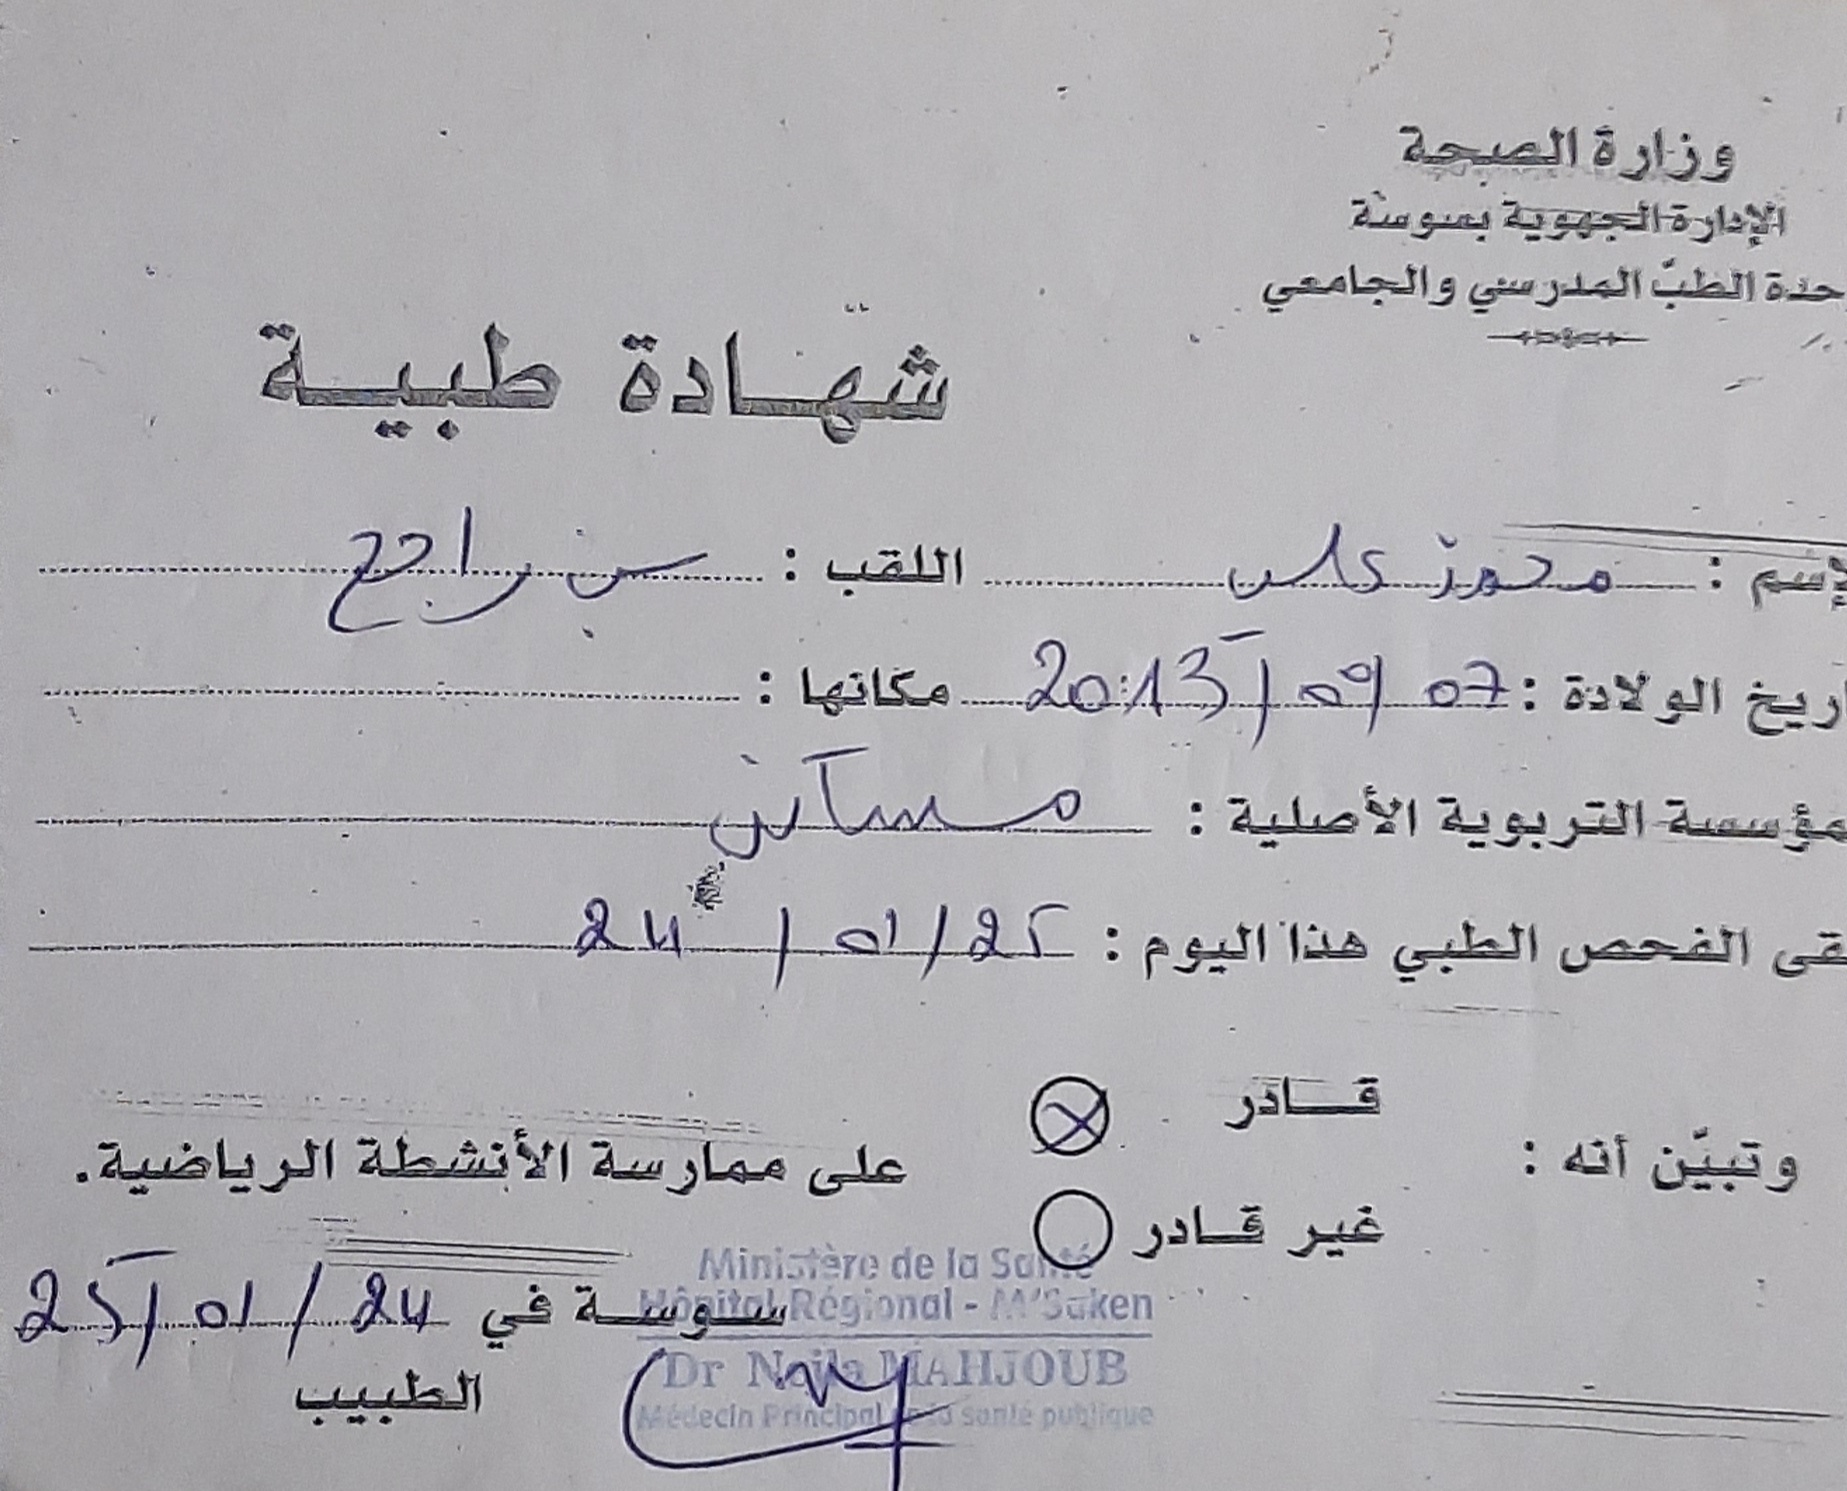 وزارة الصحة
الإدارة الجهوية بسوسة
حدة الطبّ المدرسي والجامعي
شهادة طبية
لإسم : محرز علي اللقب : بن راجح
اريخ الولادة : 07 / 09 / 2013 مكانها :
مؤسسة التربوية الأصلية : مساكن
قى الفحص الطبي هذا اليوم : 24 / 01 / 25
قادر
وتبيّن أنه : على ممارسة الأنشطة الرياضية.
غير قادر
Ministère de la Santé
Hôpital Régional - M'Saken
سوسة في 24 / 01 / 25
Dr Najla MAHJOUB
الطبيب
Médecin Principal de la santé publique